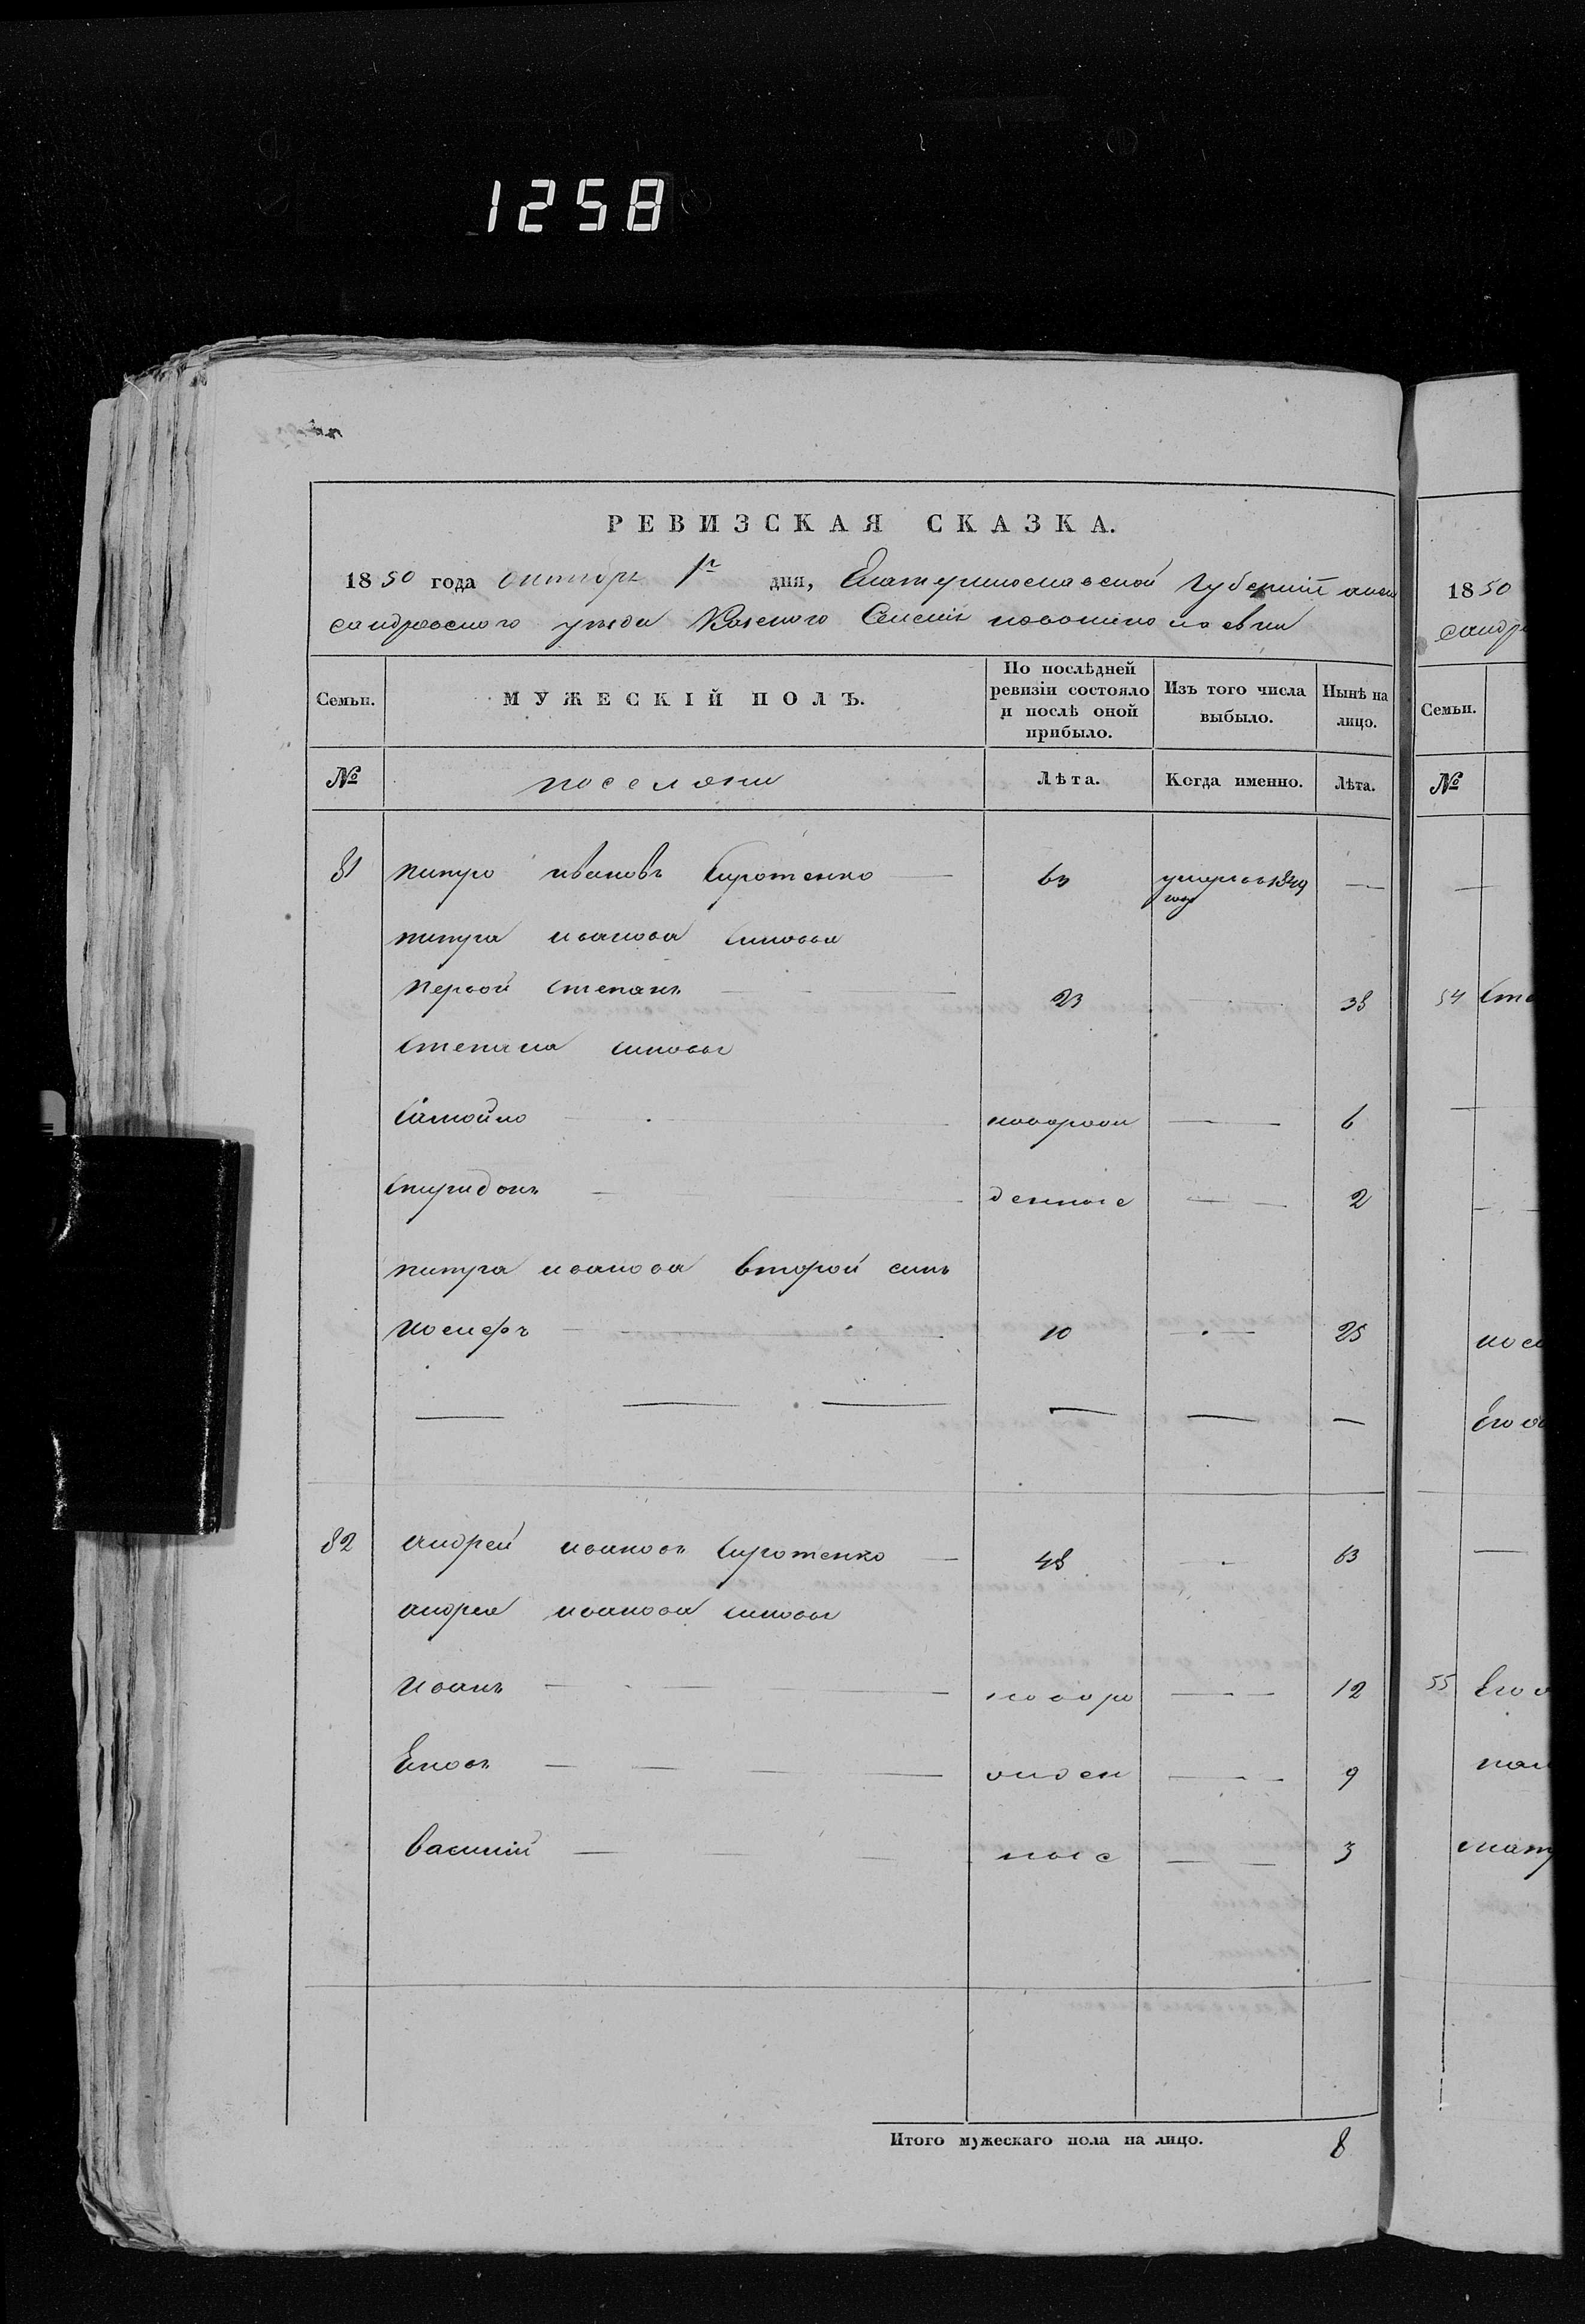 1258
РЕВИЗСКАЯ СКАЗКА.
1850 года октября 1го дня, Екатеринославской Губернiи алек
сандровского уезда Казеного Селенiя новониколаевки
Семьи. МУЖЕСКIЙ ПОЛЪ. По послѣдней ревизiи состояло и послѣ оной прибыло. Изъ того числа выбыло. Нынѣ на лицо.
№ поселяни Лѣта. Когда именно. Лѣта.
81 Ивановъ Сиротенко 63 умеръ въ 1849 году —
иванова синовья
первой степанъ 23 — 38
степана синовья
Самойло новорож — 6
Спиридонъ денные — 2
иванова второй синъ
иосифъ 10 — 25
82 андрей ивановъ Сиротенко 48 — 63
андрея иванова синовья
иванъ новоро — 12
Яковъ жден — 9
василiй ные — 3
Итого мужескаго пола на лицо. 8
1850
сандр
Семьи.
№
54 Сте
иос
Его
55 Его
мат